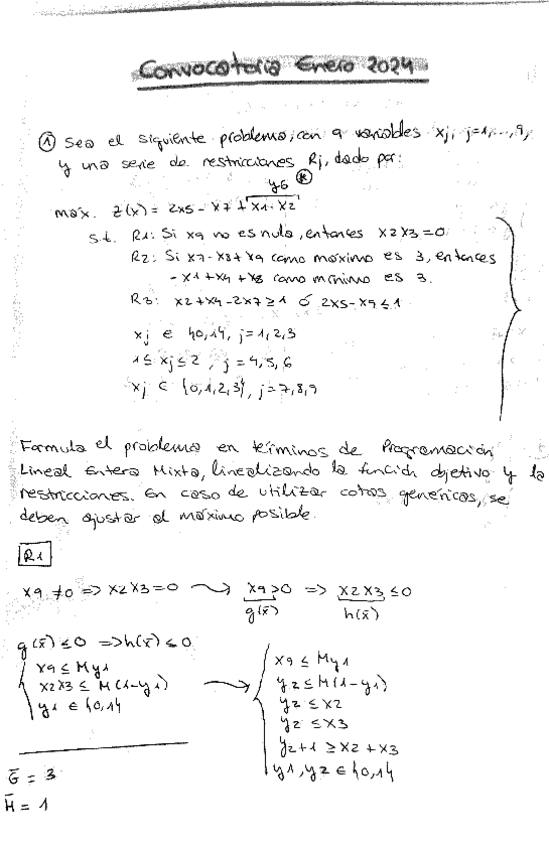 Convocatoria Enero 2024
① Sea el siguiente problema, con 9 variables xj, j=1,...,9,
y una serie de restricciones Rj, dado por:
y6 *
máx. z(x) = 2x5 - x7 + x1·x2
s.t. R1: Si x9 no es nula, entonces x2x3=0
R2: Si x7-x8+x9 como máximo es 3, entonces
-x1+x4+x8 como mínimo es 3.
R3: x2+x4-2x7≥1 ó 2x5-x9≤1
xj ∈ {0,1}, j=1,2,3
1≤xj≤2, j=4,5,6
xj ∈ {0,1,2,3}, j=7,8,9
Formula el problema en términos de Programación
Lineal Entera Mixta, linealizando la función objetivo y la
restricciones. En caso de utilizar cotas genéricas, se
deben ajustar al máximo posible.
R1
x9 ≠0 => x2x3=0 → x9>0 => x2x3≤0
g(x̄) h(x̄)
g(x̄)≤0 => h(x̄)≤0
x9≤My1
x2x3≤M(1-y1)
y1 ∈ {0,1}
→
x9≤My1
y2≤M(1-y1)
y2≤x2
y2≤x3
y2+1≥x2+x3
y1,y2 ∈ {0,1}
G̅ = 3
H̅ = 1